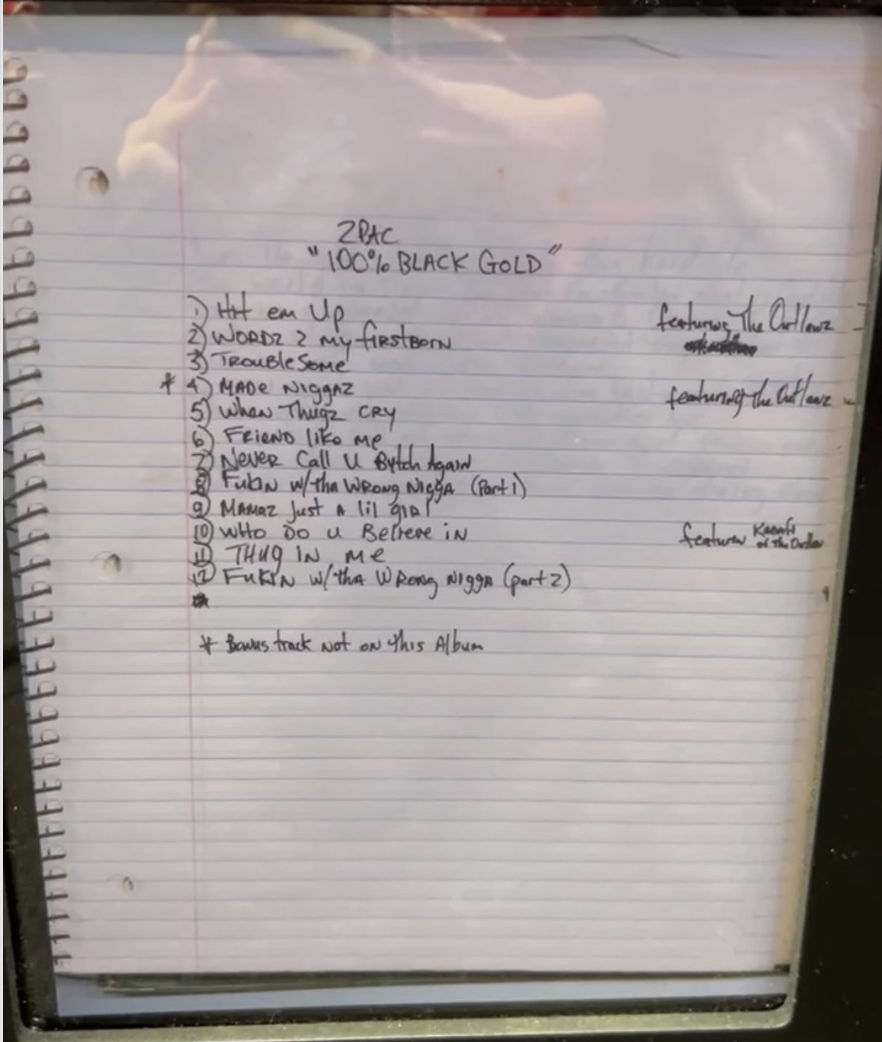 2PAC
"100% BLACK GOLD"
1) Hit em Up featuring The Outlawz
2) WORDZ 2 my firstBORN
3) TROUBLESome
* 4) MADE NIGGAZ featuring The Outlawz
5) When Thugz CRY
6) FRIEND like me
7) Never Call U Bytch Again
8) FukIN w/tha WRONG NIGGA (Part 1)
9) MAMAZ Just A lil girl
10) WHO DO U Believe iN featurin Kadafi of The Outlaw
11) THUG IN me
12) FukIN w/tha WRONG NIGGA (part 2)
* Bonus track Not ON this Album